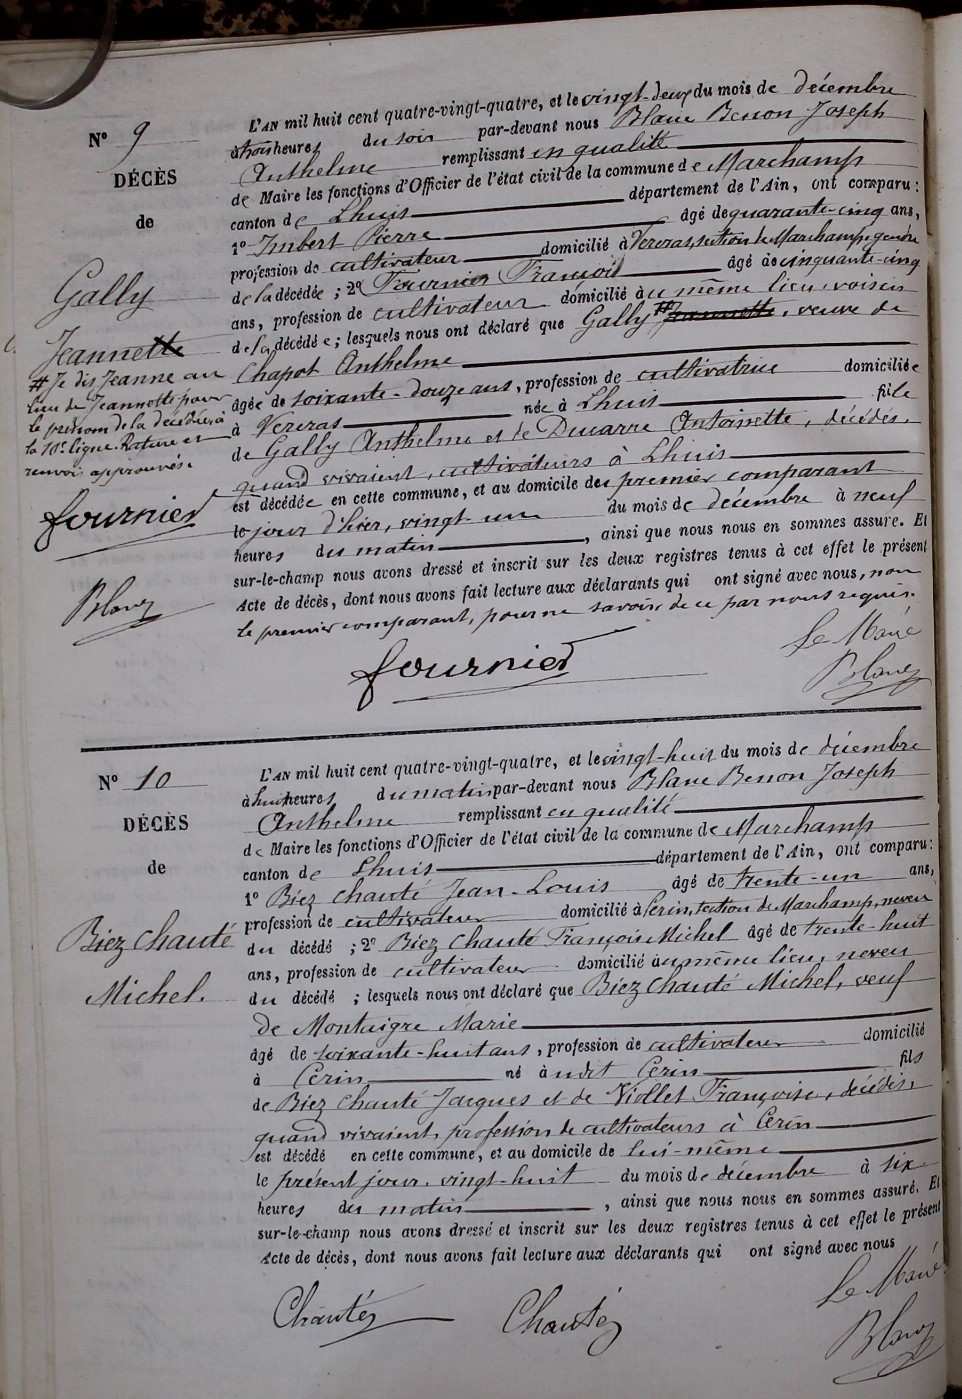 Nº 9
DÉCÈS
de
Gally
Jeannette
# Je dis Jeanne au
lieu de Jeannette pour
le prénom de la décédée, à
la 10e ligne. Rature et
renvoi approuvés.
fournier
Blanc
L'AN mil huit cent quatre-vingt-quatre, et le vingt-deux du mois de décembre
à trois heures du soir par-devant nous Blanc Benon Joseph
Anthelme remplissant en qualité
de Maire les fonctions d'Officier de l'état civil de la commune de Marchamp
canton de Lhuis département de l'Ain, ont comparu :
1º Imbert Pierre âgé de quarante-cinq ans,
profession de cultivateur domicilié à Vereras, section de Marchamp, gendre
de la décédée ; 2º Fournier François âgé de cinquante-cinq
ans, profession de cultivateur domicilié au même lieu, voisin
de la décédée ; lesquels nous ont déclaré que Gally # Jeannette, veuve de
Chapot Anthelme
âgée de soixante-douze ans, profession de cultivatrice domiciliée
à Vereras née à Lhuis fille
de Gally Anthelme et de Ducarre Antoinette, décédés,
quand vivaient, cultivateurs à Lhuis
est décédée en cette commune, et au domicile du premier comparant
le jour d'hier, vingt-un du mois de décembre à neuf
heures du matin , ainsi que nous nous en sommes assuré. Et
sur-le-champ nous avons dressé et inscrit sur les deux registres tenus à cet effet le présent
Acte de décès, dont nous avons fait lecture aux déclarants qui ont signé avec nous, non
le premier comparant, pour ne savoir, de ce par nous requis.
fournier
Le Maire
Blanc
Nº 10
DÉCÈS
de
Biez Chauté
Michel.
L'AN mil huit cent quatre-vingt-quatre, et le vingt-huit du mois de décembre
à huit heures du matin par-devant nous Blanc Benon Joseph
Anthelme remplissant en qualité
de Maire les fonctions d'Officier de l'état civil de la commune de Marchamp
canton de Lhuis département de l'Ain, ont comparu :
1º Biez Chauté Jean-Louis âgé de trente-un ans,
profession de cultivateur domicilié à Cerin, section de Marchamp, neveu
du décédé ; 2º Biez Chauté François Michel âgé de trente-huit
ans, profession de cultivateur domicilié au même lieu, neveu
du décédé ; lesquels nous ont déclaré que Biez Chauté Michel, veuf
de Montaigre Marie
âgé de soixante-huit ans, profession de cultivateur domicilié
à Cerin né à udit Cerin fils
de Biez Chauté Jacques et de Viollet Françoise, décédés,
quand vivaient, profession de cultivateurs à Cerin
est décédé en cette commune, et au domicile de lui-même
le présent jour, vingt-huit du mois de décembre à six
heures du matin , ainsi que nous nous en sommes assuré. Et
sur-le-champ nous avons dressé et inscrit sur les deux registres tenus à cet effet le présent
Acte de décès, dont nous avons fait lecture aux déclarants qui ont signé avec nous
Chautéz
Chautéz
Le Maire
Blanc